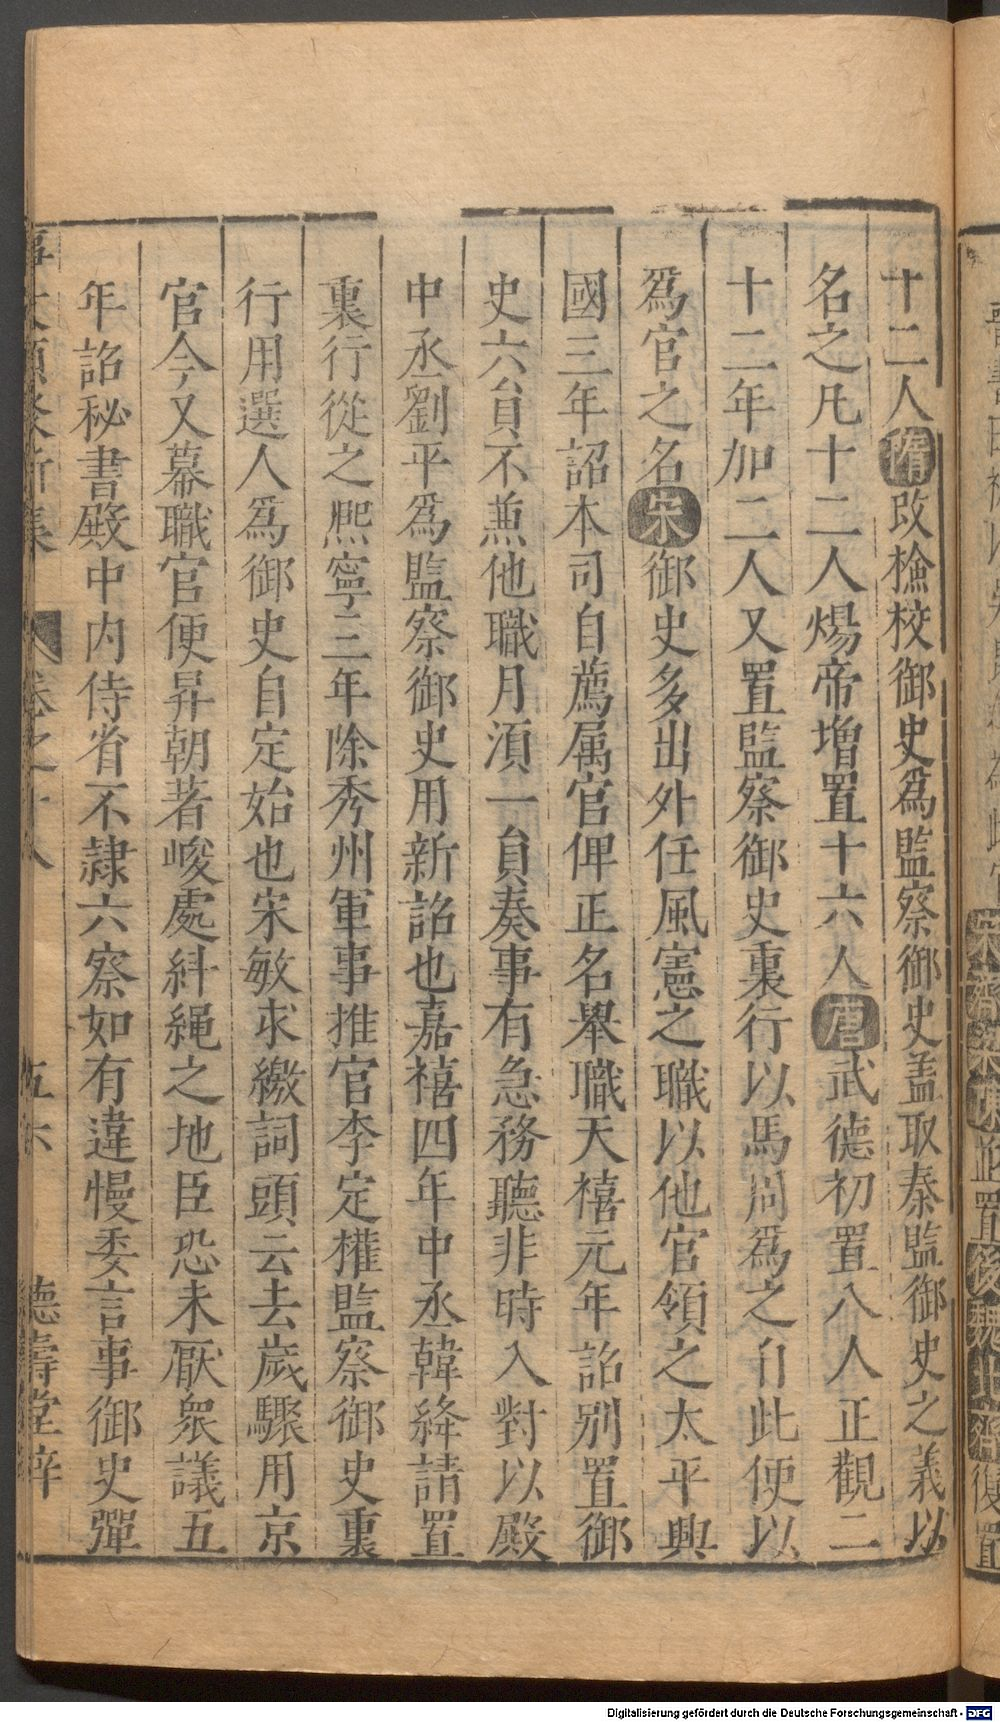 十二人隋改檢校御史爲監察御史盖取秦監御史之義以
名之凡十二人煬帝增置十六人唐武德初置八人正觀二
十二年加二人又置監察御史裏行以馬周爲之自此便以
爲官之名宋御史多出外任風憲之職以他官領之太平興
國三年詔本司自薦属官俾正名舉職天禧元年詔别置御
史六員不兼他職月湏一員奏事有急務聽非時入對以殿
中丞劉平爲監察御史用新詔也嘉禧四年中丞韓絳請置
裏行從之熈寧三年除秀州軍事推官李定權監察御史裏
行用選人爲御史自定始也宋敏求繳詞頭云去歲驟用京
官今又幕職官便昇朝著峻處糾繩之地臣恐未厭衆議五
年詔秘書殿中内侍省不隷六察如有違慢委言事御史彈
卷之十八
五六
德壽堂梓
並置後魏北齊復置
Digitalisierung gefördert durch die Deutsche Forschungsgemeinschaft - DFG